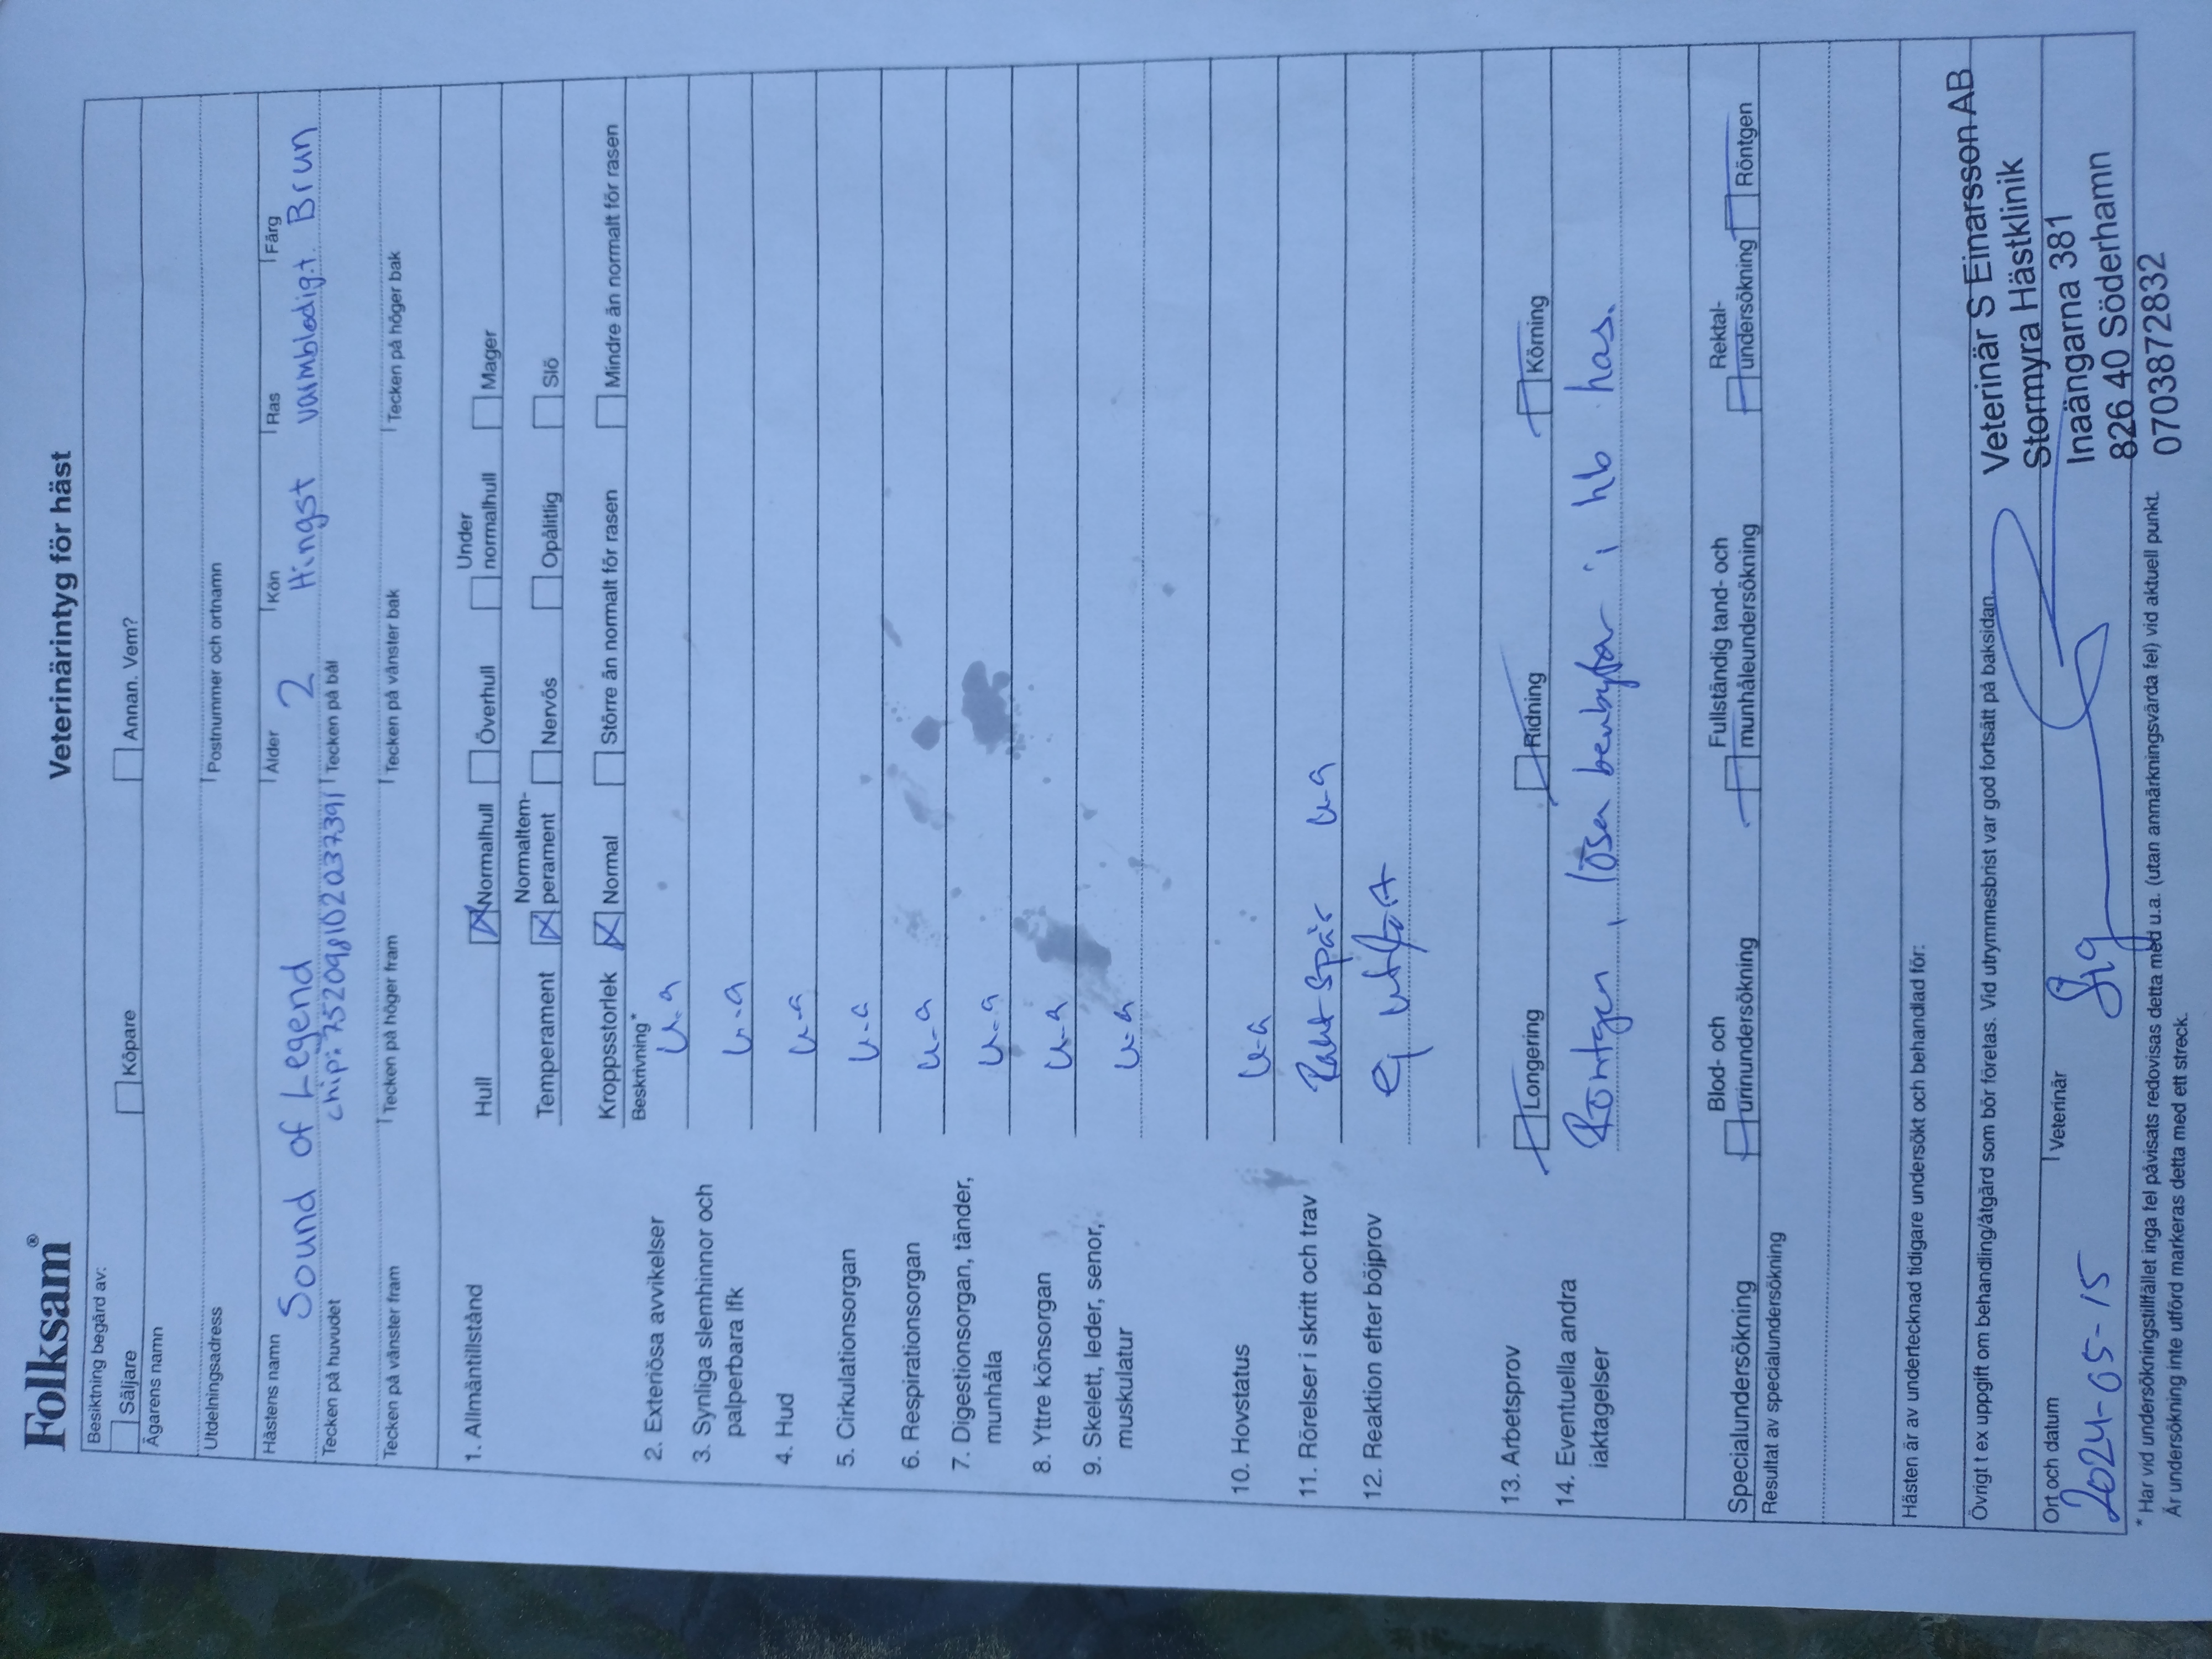 Folksam®
Veterinärintyg för häst
Besiktning begärd av:
Säljare Köpare Annan. Vem?
Ägarens namn
Utdelningsadress Postnummer och ortnamn
Hästens namn Ålder Kön Ras Färg
Sound of Legend 2 Hingst varmblodigt Brun
Tecken på huvudet chip: 752098102037391 Tecken på bål
Tecken på vänster fram Tecken på höger fram Tecken på vänster bak Tecken på höger bak
1. Allmäntillstånd Hull Normalhull Överhull Under normalhull Mager
Temperament Normaltem-perament Nervös Opålitlig Slö
Kroppsstorlek Normal Större än normalt för rasen Mindre än normalt för rasen
Beskrivning*
2. Exteriösa avvikelser u-a
3. Synliga slemhinnor och
palperbara lfk u-a
4. Hud u-a
5. Cirkulationsorgan u-a
6. Respirationsorgan u-a
7. Digestionsorgan, tänder,
munhåla u-a
8. Yttre könsorgan u-a
9. Skelett, leder, senor,
muskulatur u-a
10. Hovstatus u-a
11. Rörelser i skritt och trav Rakt spår u-a
12. Reaktion efter böjprov ej utfört
13. Arbetsprov Longering Ridning Körning
14. Eventuella andra
iaktagelser Röntgen, lösa benbitar i hb has.
Specialundersökning Blod- och urinundersökning Fullständig tand- och munhåleundersökning Rektal-undersökning Röntgen
Resultat av specialundersökning
Hästen är av undertecknad tidigare undersökt och behandlad för:
Övrigt t ex uppgift om behandling/åtgärd som bör företas. Vid utrymmesbrist var god fortsätt på baksidan.
Ort och datum Veterinär
2024-05-15
Veterinär S Einarsson AB
Stormyra Hästklinik
Inaängarna 381
826 40 Söderhamn
0703872832
* Har vid undersökningstillfället inga fel påvisats redovisas detta med u.a. (utan anmärkningsvärda fel) vid aktuell punkt.
Är undersökning inte utförd markeras detta med ett streck.